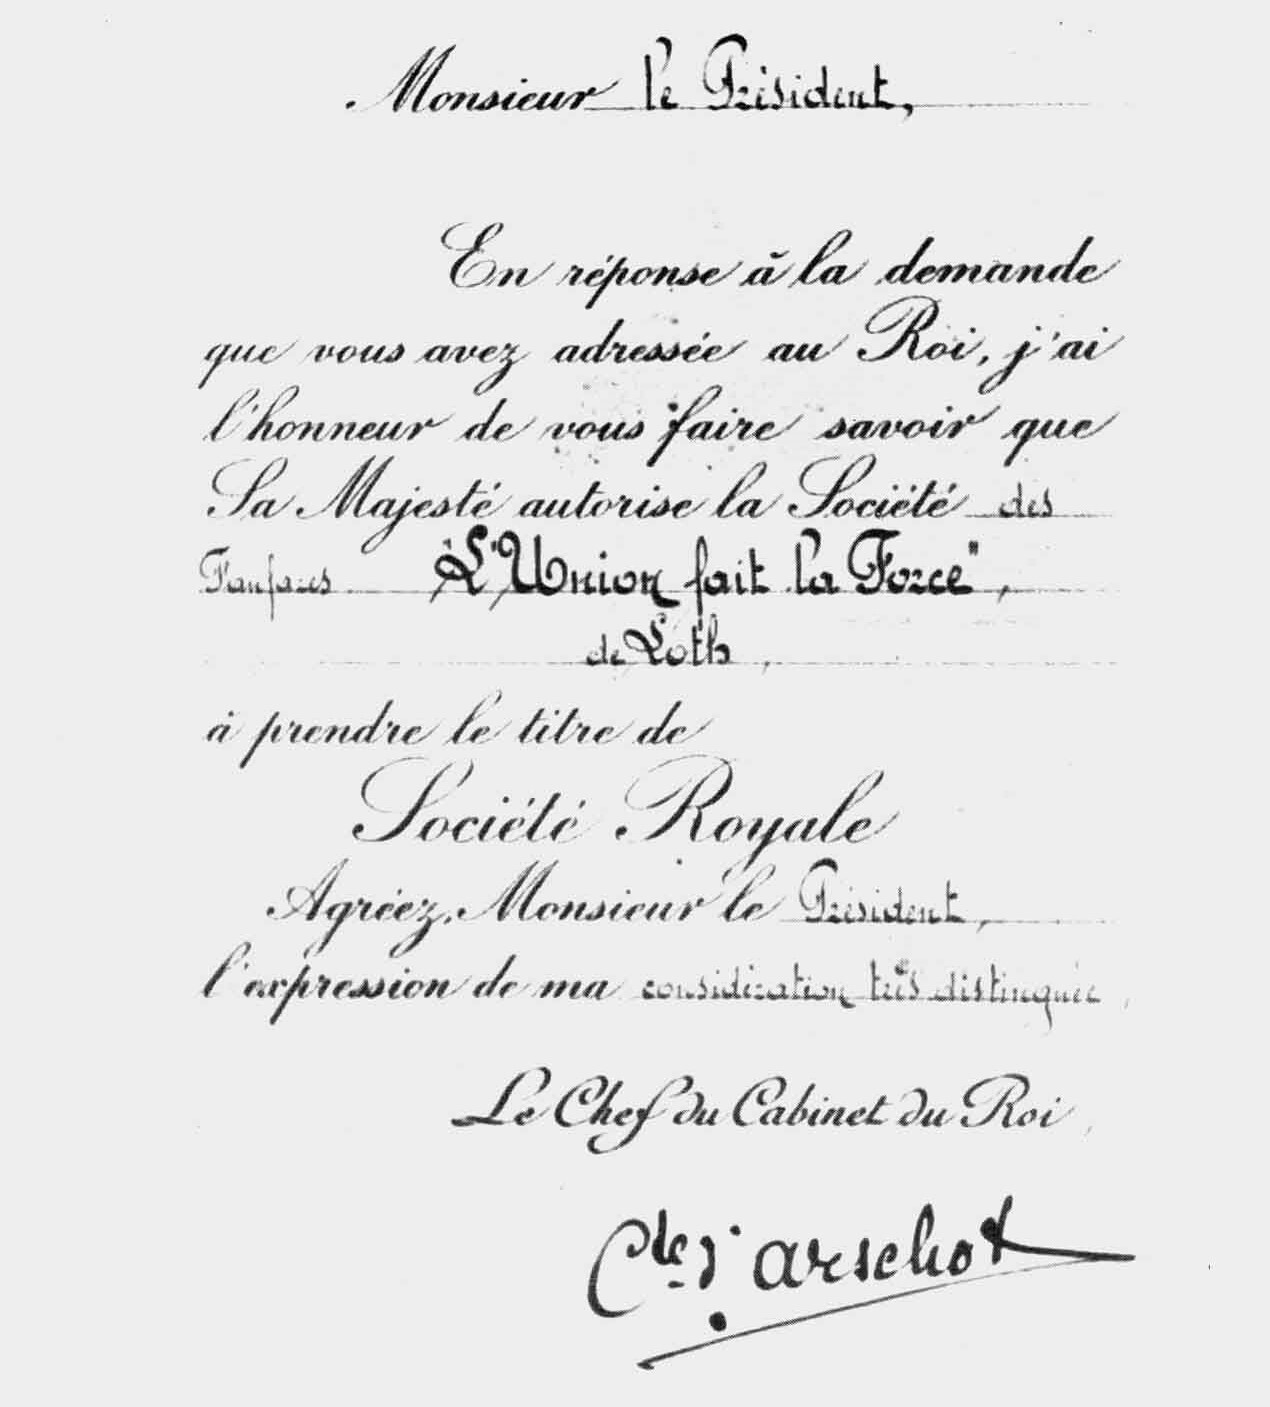 Monsieur le Président,
En réponse à la demande
que vous avez adressée au Roi, j'ai
l'honneur de vous faire savoir que
Sa Majesté autorise la Société des
Fanfares "L'Union fait la Force",
de Loth,
à prendre le titre de
Société Royale
Agréez, Monsieur le Président,
l'expression de ma considération très distinguée,
Le Chef du Cabinet du Roi,
Cte d'Arschot